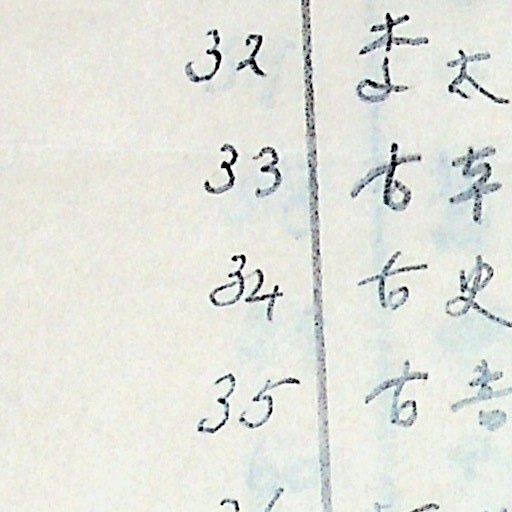 32 李 太
33 古 草
34 古 史
35 古 吉